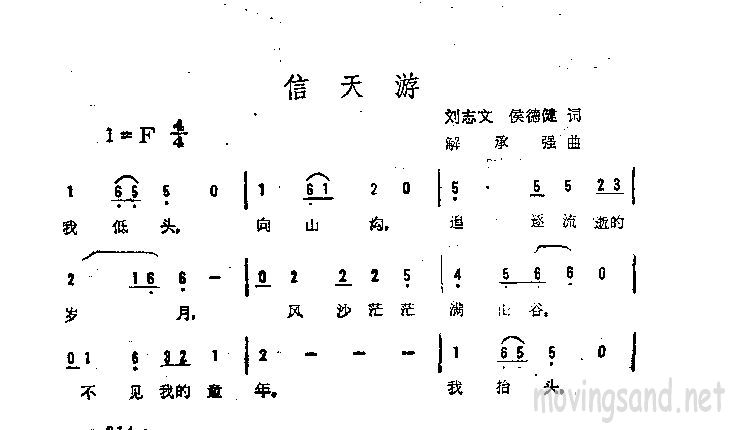 信天游
刘志文 侯德健 词
1=F 4/4
解承强 曲
1 6 5 5 0 | 1 6 1 2 0 | 5 · 5 5 2 3 |
我低头, 向山沟, 追逐流逝的
2 1 6 6 — | 0 2 2 2 5 | 4 5 6 6 0 |
岁月, 风沙茫茫满山谷。
0 1 6 3 2 1 | 2 — — — | 1 6 5 5 0 |
不见我的童年。 我抬头,
movingsand.net